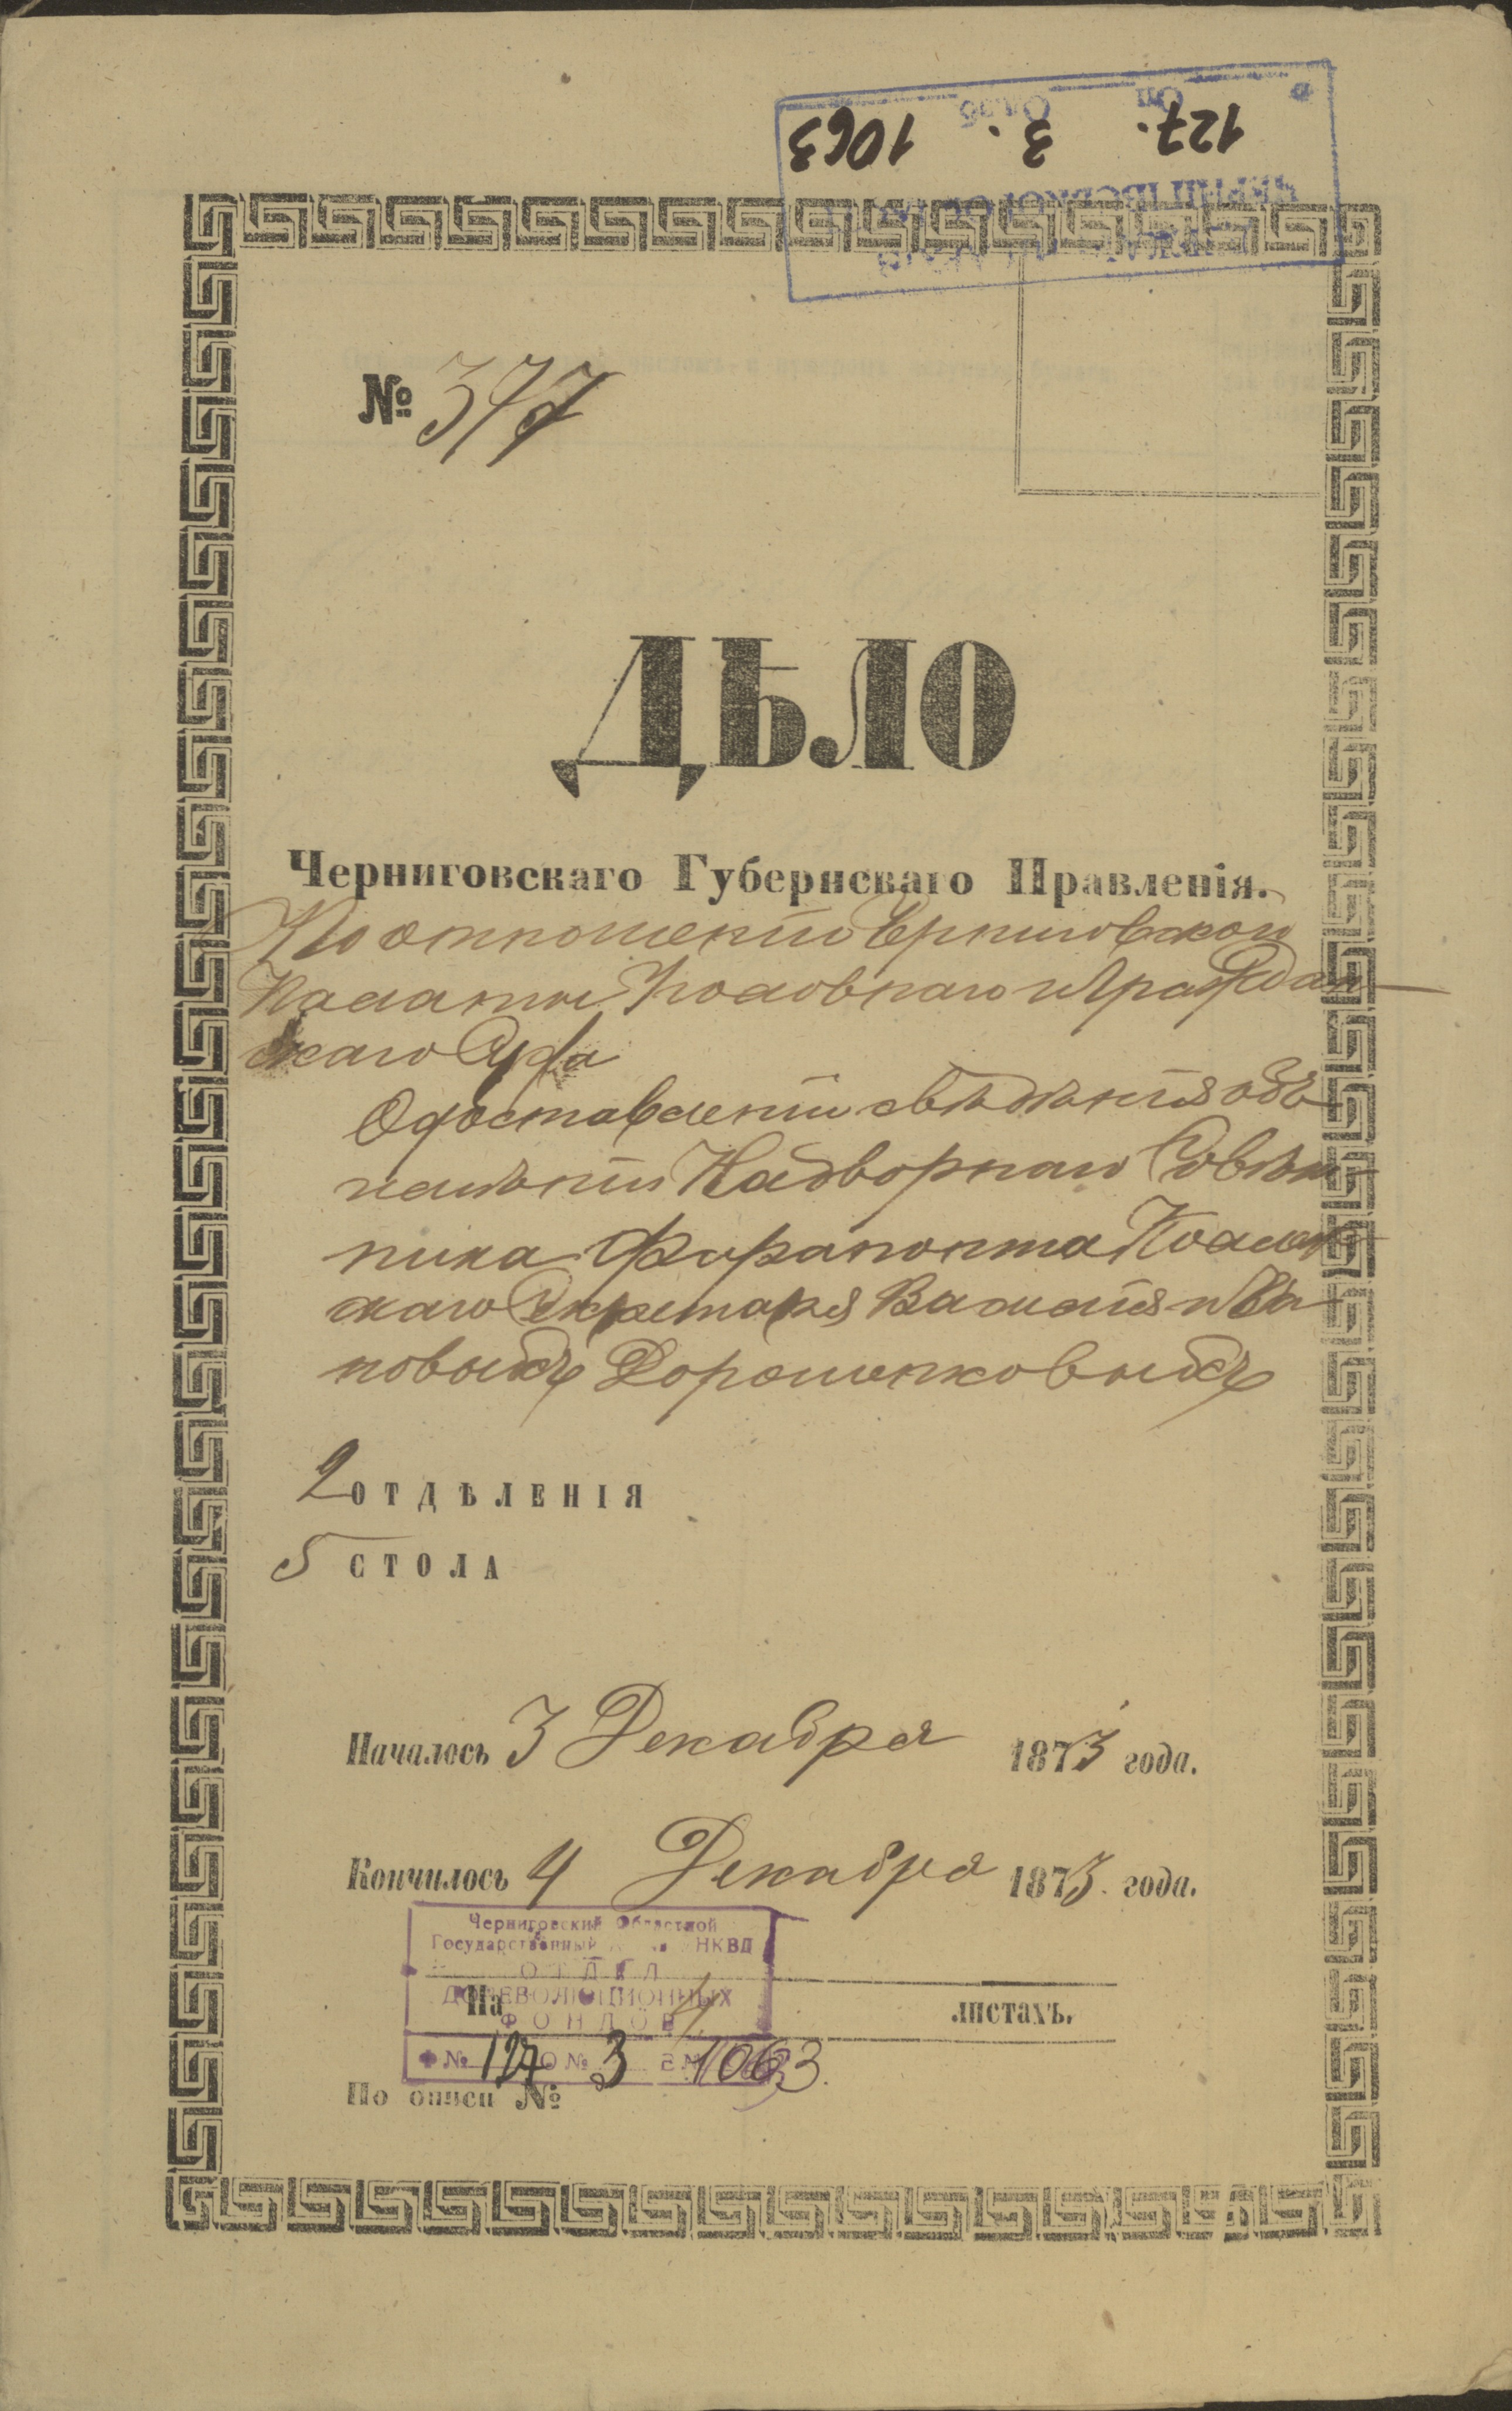 127. 3. 1063
№ 377
ДѢЛО
Черниговскаго Губернскаго Правленія.
По отношенію Черниговской
Палаты Уголовнаго и Граждан-
скаго Суда
О доставленіи свѣдѣнія объ
имѣніи Надворнаго Совѣт-
ника Фарапонта Коллеж-
скаго Секретаря Василія Ива-
новыхъ Дорошенковыхъ
2 ОТДѢЛЕНІЯ
5 СТОЛА
Началось 3 Декабря 1873 года.
Кончилось 4 Декабря 1873 года.
Черниговский Областной
Государственный НКВД
ОТДЕЛ
ДОРЕВОЛЮЦИОННЫХ
ФОНДОВ
На листахъ.
Ф № 127 О № 3 1063.
По описи №